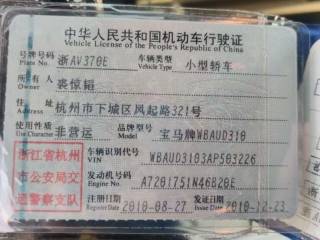 中华人民共和国机动车行驶证
Vehicle License of the People's Republic of China
号牌号码 浙AV370E 车辆类型 小型轿车
Plate No. Vehicle Type
所有人 裘惊韬
Owner
住址 杭州市下城区凤起路321号
Address
使用性质 非营运 品牌型号 宝马牌WBAUD310
Use Character Model
浙江省杭州
市公安局交
通警察支队
车辆识别代号 WBAUD3103AP503226
VIN
发动机号码 A7201751N46B20E
Engine No.
注册日期 2010-08-27 发证日期 2010-12-23
Register Date Issue Date